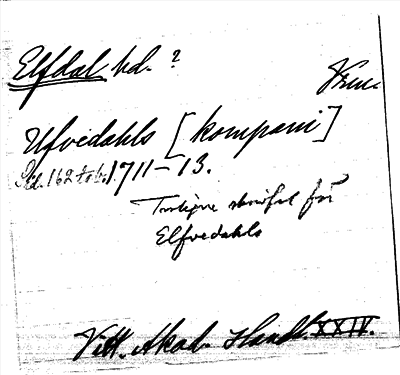 Elfdal hd. ?
Vrm.
Ufvedahls [kompani]
Sid. 162 tab. 1711-13.
Troligen skriffel för
Elfvedahls
Vitt. Akad. Handl. XXIV.